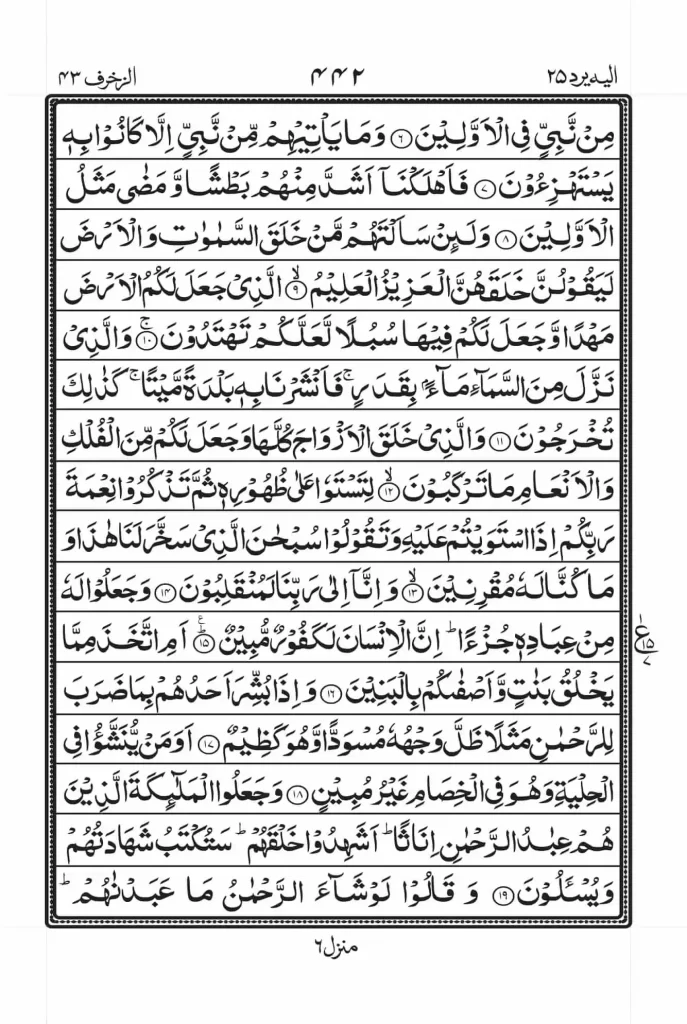 الیه یرد ۲۵ ۴۴۲ الزخرف ۴۳
مِنْ نَّبِیٍّ فِی الْاَوَّلِیْنَ ۶ وَمَا یَاْتِیْهِمْ مِّنْ نَّبِیٍّ اِلَّا كَانُوْا بِهٖ
یَسْتَهْزِءُوْنَ ۷ فَاَهْلَكْنَاۤ اَشَدَّ مِنْهُمْ بَطْشًا وَّ مَضٰی مَثَلُ
الْاَوَّلِیْنَ ۸ وَلَىِٕنْ سَاَلْتَهُمْ مَّنْ خَلَقَ السَّمٰوٰتِ وَالْاَرْضَ
لَیَقُوْلُنَّ خَلَقَهُنَّ الْعَزِیْزُ الْعَلِیْمُ ۙ۹ الَّذِیْ جَعَلَ لَكُمُ الْاَرْضَ
مَهْدًا وَّجَعَلَ لَكُمْ فِیْهَا سُبُلًا لَّعَلَّكُمْ تَهْتَدُوْنَ ۚ۱۰ وَالَّذِیْ
نَزَّلَ مِنَ السَّمَآءِ مَآءًۢ بِقَدَرٍ ۚ فَاَنْشَرْنَا بِهٖ بَلْدَةً مَّیْتًا ۚ كَذٰلِكَ
تُخْرَجُوْنَ ۱۱ وَالَّذِیْ خَلَقَ الْاَزْوَاجَ كُلَّهَا وَجَعَلَ لَكُمْ مِّنَ الْفُلْكِ
وَالْاَنْعَامِ مَا تَرْكَبُوْنَ ۙ۱۲ لِتَسْتَوٗا عَلٰی ظُهُوْرِهٖ ثُمَّ تَذْكُرُوْا نِعْمَةَ
رَبِّكُمْ اِذَا اسْتَوَیْتُمْ عَلَیْهِ وَتَقُوْلُوْا سُبْحٰنَ الَّذِیْ سَخَّرَ لَنَا هٰذَا وَ
مَا كُنَّا لَهٗ مُقْرِنِیْنَ ۙ۱۳ وَاِنَّاۤ اِلٰی رَبِّنَا لَمُنْقَلِبُوْنَ ۱۴ وَجَعَلُوْا لَهٗ
مِنْ عِبَادِهٖ جُزْءًا ؕ اِنَّ الْاِنْسَانَ لَكَفُوْرٌ مُّبِیْنٌ ؕ۱۵ اَمِ اتَّخَذَ مِمَّا
ع ۱۵ ۷
یَخْلُقُ بَنٰتٍ وَّاَصْفٰىكُمْ بِالْبَنِیْنَ ۱۶ وَاِذَا بُشِّرَ اَحَدُهُمْ بِمَا ضَرَبَ
لِلرَّحْمٰنِ مَثَلًا ظَلَّ وَجْهُهٗ مُسْوَدًّا وَّهُوَ كَظِیْمٌ ۱۷ اَوَمَنْ یُّنَشَّؤُا فِی
الْحِلْیَةِ وَهُوَ فِی الْخِصَامِ غَیْرُ مُبِیْنٍ ۱۸ وَجَعَلُوا الْمَلٰٓىِٕكَةَ الَّذِیْنَ
هُمْ عِبٰدُ الرَّحْمٰنِ اِنَاثًا ؕ اَشَهِدُوْا خَلْقَهُمْ ؕ سَتُكْتَبُ شَهَادَتُهُمْ
وَیُسْـَٔلُوْنَ ۱۹ وَ قَالُوْا لَوْ شَآءَ الرَّحْمٰنُ مَا عَبَدْنٰهُمْ ؕ
منزل ۶